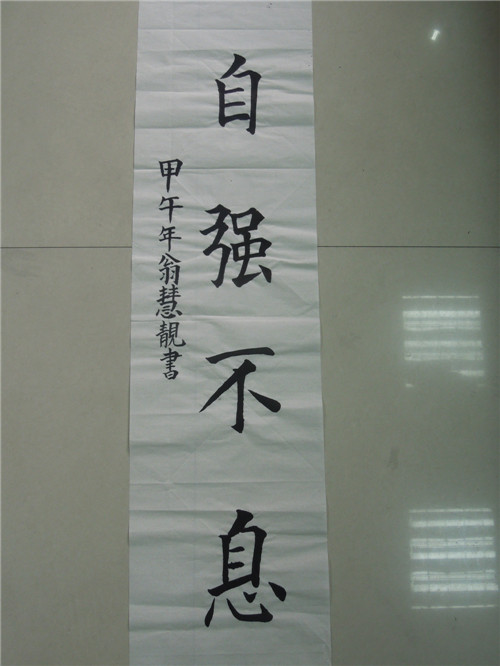 自强不息
甲午年翁慧靓書